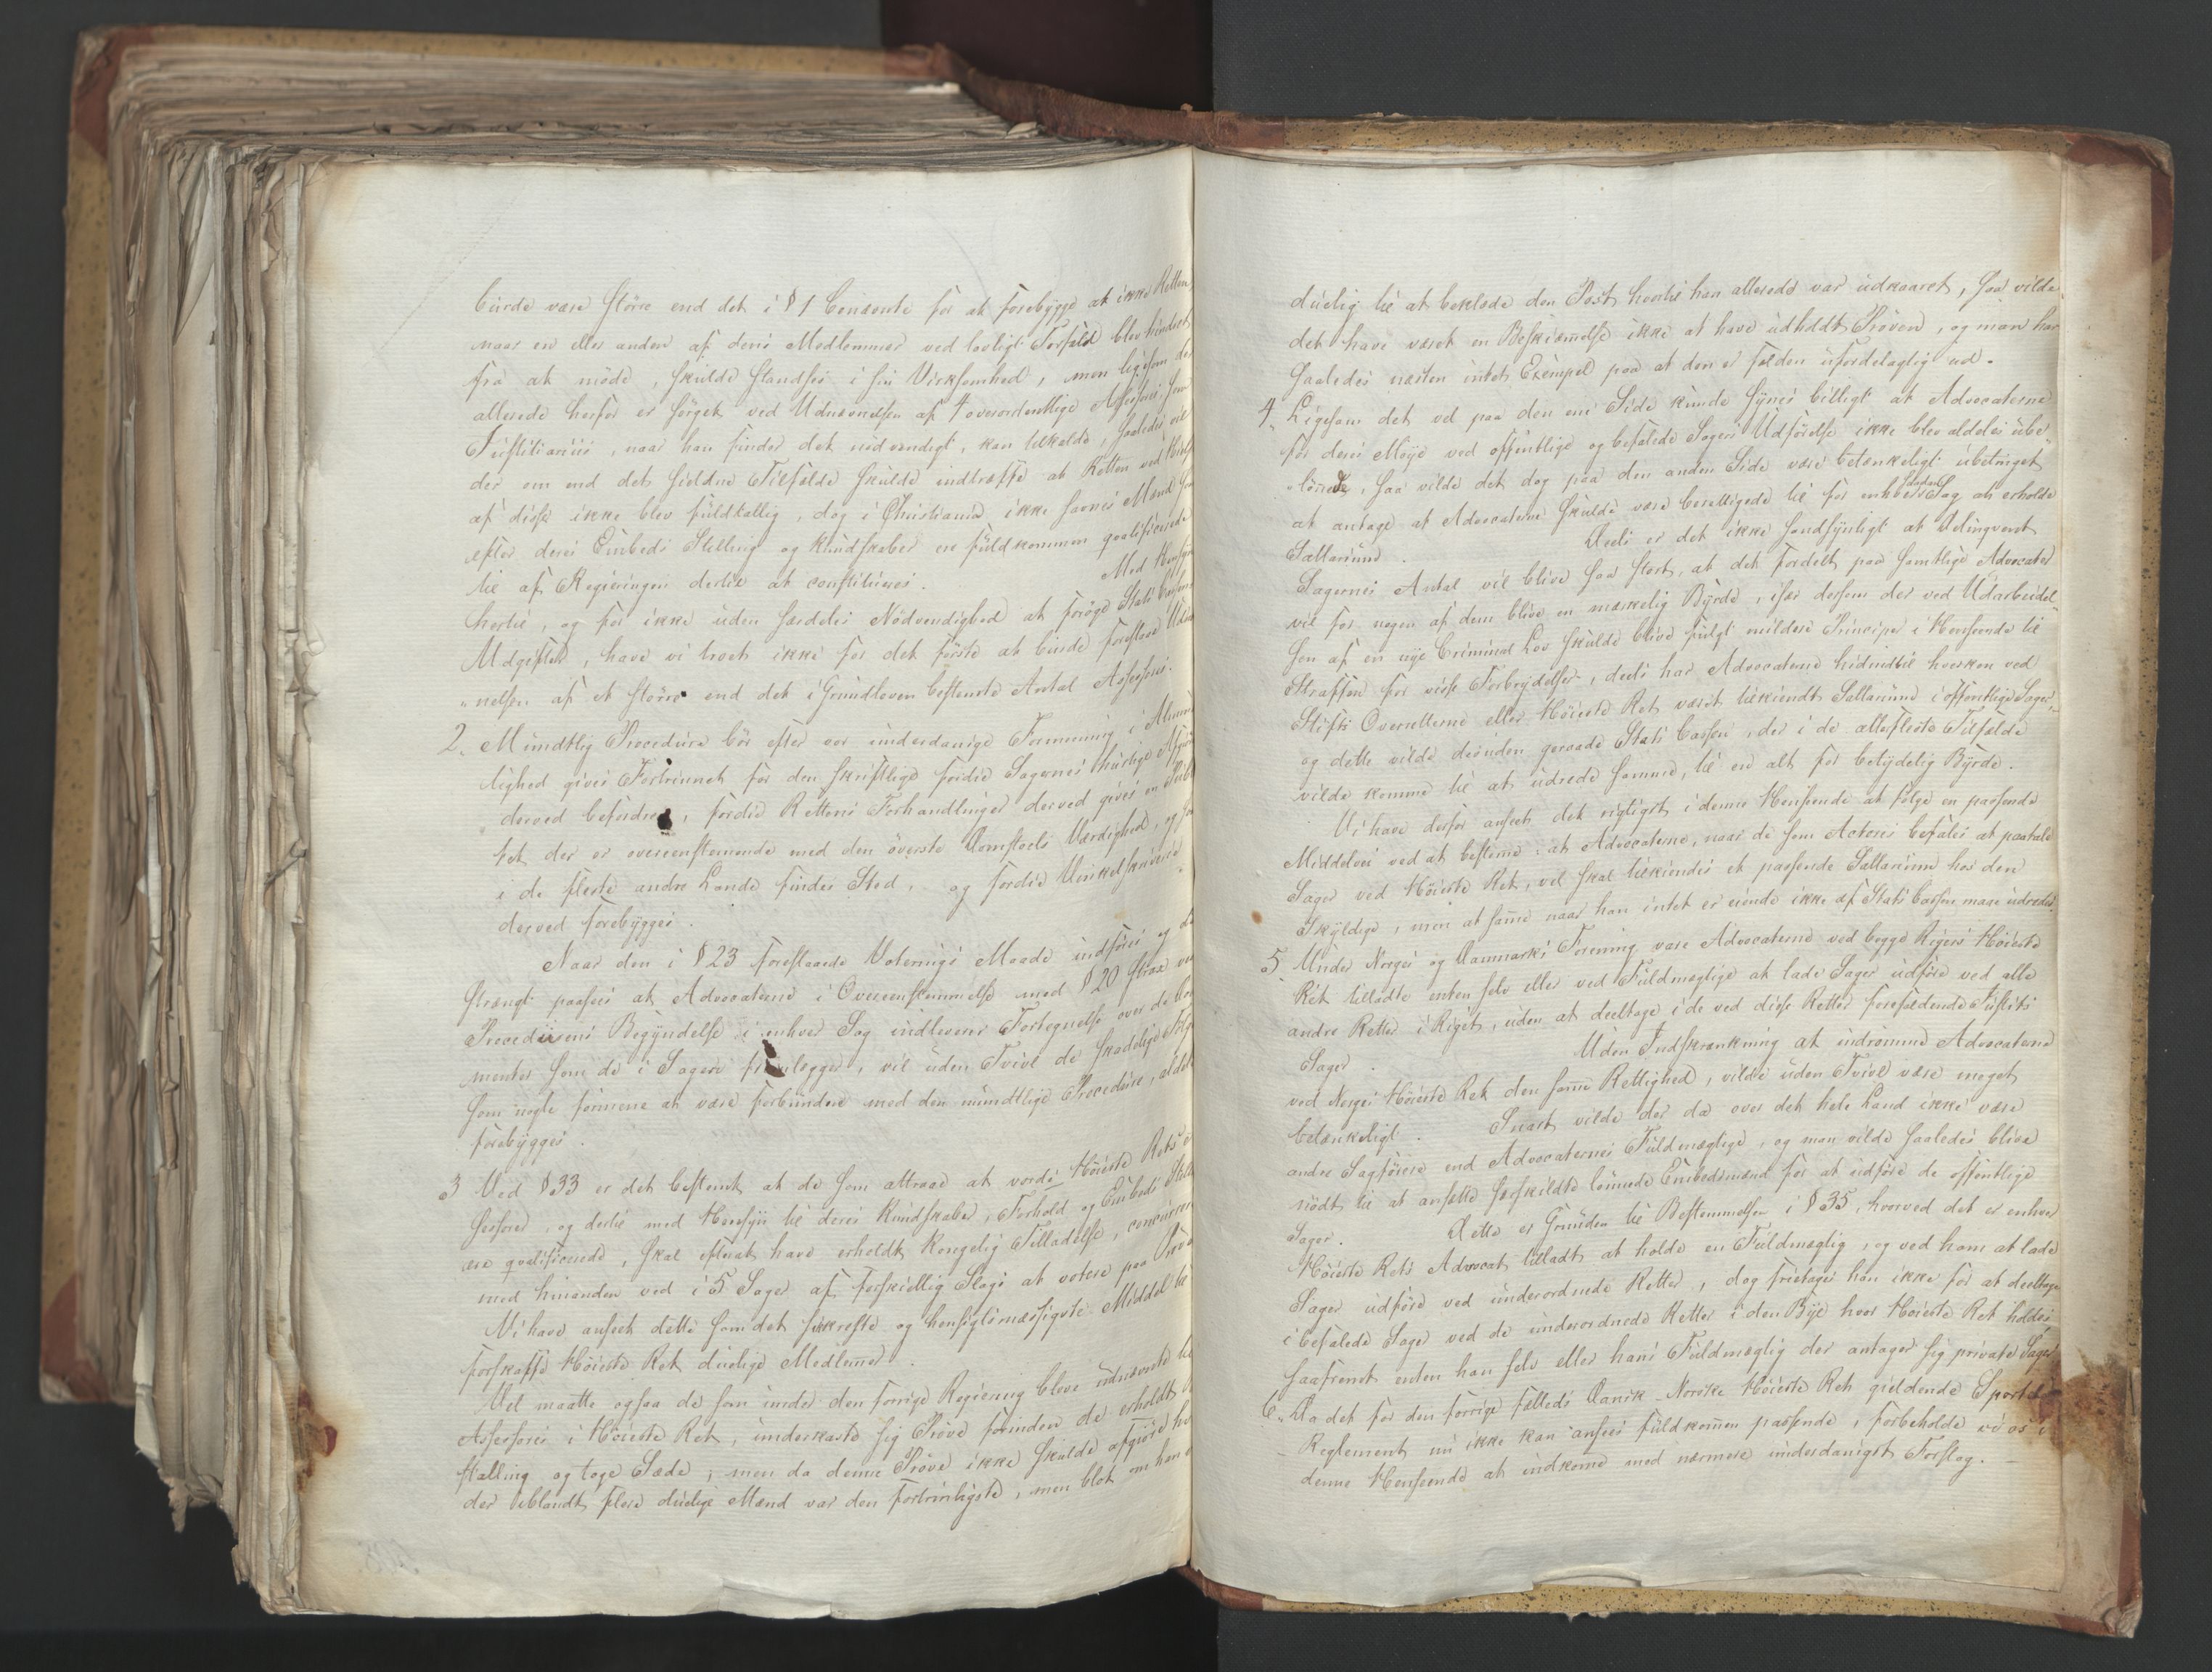 burde være större end det i § 1 benævnte for at forebygge at ikke Retten
naar en eller anden af dens Medlemmer ved lovligt Forfald blev hindret
fra at möde, skulde standses i sin Virksomhed, men ligesom der
allerede herfor er sörget ved Udnævnelsen af 4 overordentlige Assessores som
Justitiarius, naar han finder det nödvendigt, kan tilkalde, saaledes vil
der om end det sieldne Tilfælde skulde indtræffe at Retten ved
af disse ikke blev fuldtallig, dog i Christiania ikke savnes Mænd som
efter deres Embeds Stilling og Kundskaber ere fuldkommen qvalificerede
til af Regieringen dertil at constitueres. Med Hensyn
hertil, og for ikke uden særdeles Nödvendighed at foröge Stats Cassens
Udgifter, have vi troet ikke for det förste at burde foreslaae Udnæv
"nelsen af et större end det i Grundloven bestemte Antal Assessores.
2. Mundtlig Procedure bör efter vor underdanige Formening i Almin
lighed gives Fortrinnet for den skriftlige fordie Sagernes hurtige Afgiör
derved befordres, fordie Rettens Forhandlinger derved gives en
tet der er overeenstemmende med den överste Domstoels Værdighed, og som
i de fleste andre Lande finder Sted, og fordie Vinkelskriverie
derved forebygges.
Naar den i § 23 foreslaaede Voterings Maade indföres og det
strængt paasees at Advocaterne i Overeensstemmelse med § 20 strax ved
Procedurens Begyndelse i enhver Sag indleverer Fortegnelse over de Docu
menter som de i Sagen fremlægger, vil uden Tvivl de skadelige Fölger
som nogle formene at være forbundne med den mundtlige Procedure, aldeles
forebygges.
3 Ved § 33 er det bestemt at de som attraae at vorde Höieste Rets As
sessorer, og dertil med Hensyn til deres Kundskaber, Forhold og Embeds Stilling
ere qvalificerede, skal efterat have erholdt Kongelig Tilladelse, concurrere
med hinanden ved i 5 Sager af forskiellig Slags at votere paa Pröve
Vi have anseet dette som det sikkreste og hensigtsmæssigste Middel til
forskaffe Höieste Ret duelige Medlemer.
Vel maatte ogsaa de som under den forrige Regiering bleve udnævnte til
Assessores i Höieste Ret, underkaste sig Pröve forinden de erholdt
stalling og toge Sæde, men da denne Pröve ikke skulde afgiöre hvo
der iblandt flere duelige Mænd var den fortrinligste, men blot om han
duelig til at beklæde den Post hvortil han allerede var udkaaret, saa vilde
det have været en Beskiæmelse ikke at have udholdt Pröven, og man har
saaledes næsten intet Exempel paa at den er falden ufordelagtig ud.
4" Ligesom det vel paa den ene Side kunde synes billigt at Advocaterne
for deres Möye ved offentlige og befalede Sagers Udförelse ikke blev aldeles ube"
"lönnede, saa vilde det dog paa den anden Side være betænkeligt ubetinget
at antage at Advocaterne skulde være berettigede til for enhver saadan Sag at erholde
Sallarium. Deels er det ikke sandsynligt at Delinqvent
Sagernes Antal vil blive saa stort, at det fordelt paa samtlige Advocater
vil for nogen af dem blive en mærkelig Byrde, især dersom der ved Udarbeidel"
sen af en nye Criminal Lov skulde blive fulgt mildere Principer i Henseende til
Straffen for visse Forbrydelser, deels har Advocaterne hidindtil hverken ved
Stifts Overretterne eller Höieste Ret været tilkiendt Sallarium i offentlige Sager,
og dette vilde desuden geraade Stats Cassen, der i de allerfleste Tilfælde
vilde komme til at udrede samme, til en alt for betydelig Byrde.
Vi have derfor anseet det rigtigst i denne Henseende at fölge en passende
Middelvei ved at bestemme: at Advocaterne, naar de som Actores befales at paatale
Sager ved Höieste Ret, vel skal tilkiendes et passende Sallarium hos den
Skyldige, men at same naar han intet er eiende ikke af Stats Cassen maae udredes.
5 Under Norges og Danmarks Forening vare Advocaterne ved begge Rigers Höieste
Ret tilladte enten selv eller ved Fuldmægtige at lade Sager udföre ved alle
andre Retter i Riget, uden at deeltage i de ved disse Retter forefaldende Justits
Sager. Uden Indskrænkning at indrömme Advocaterne
ved Norges Höieste Ret den same Rettighed, vilde uden Tvivl være meget
betænkeligt. Snart vilde der da over det hele Land ikke være
andre Sagförere end Advocaternes Fuldmægtige, og man vilde saaledes blive
nödt til at ansætte særskildte lönnede Embedsmænd for at udföre de offentlige
Sager. Dette er Grunden til Bestemmelsen i § 35, hvorved det er enhver
Höieste Rets Advocat tilladt at holde en Fuldmægtig, og ved ham at lade
Sager udföre ved underordnede Retter, dog fritages han ikke for at deeltage
i befalede Sager ved de underordnede Retter i den Bye hvor Höieste Ret holdes
saafremt enten han selv eller hans Fuldmægtig der antager sig private Sager
6" Da det for den forrige fælleds Dansk-Norske Höieste Ret gieldende Sportel
Reglement nu ikke kan ansees fuldkommen passende, forbeholde vi os i
denne Henseende at indkomme med nærmere underdanigst Forslag.